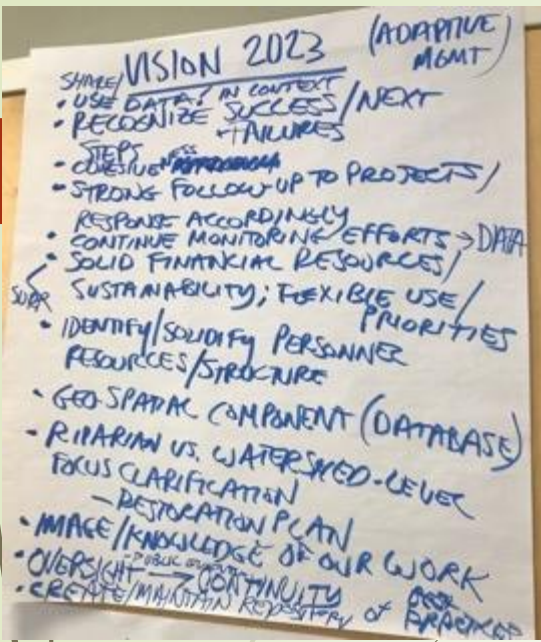 VISION 2023 (ADAPTIVE MGMT)
SHARE/
• USE DATA! IN CONTEXT
• RECOGNIZE SUCCESS/NEXT
STEPS + FAILURES
• COHESIVENESS
• STRONG FOLLOW-UP TO PROJECTS/
RESPONSE ACCORDINGLY
• CONTINUE MONITORING EFFORTS → DATA
• SOLID FINANCIAL RESOURCES/
SUSTAINABILITY; FLEXIBLE USE/
PRIORITIES
• IDENTIFY/SOLIDIFY PERSONNEL
RESOURCES/STRUCTURE
• GEO SPATIAL COMPONENT (DATABASE)
• RIPARIAN VS. WATERSHED-LEVEL
FOCUS CLARIFICATION
– RESTORATION PLAN
• IMAGE/KNOWLEDGE OF OUR WORK
• OVERSIGHT → CONTINUITY
• CREATE/MAINTAIN REPOSITORY of BEST PRACTICES